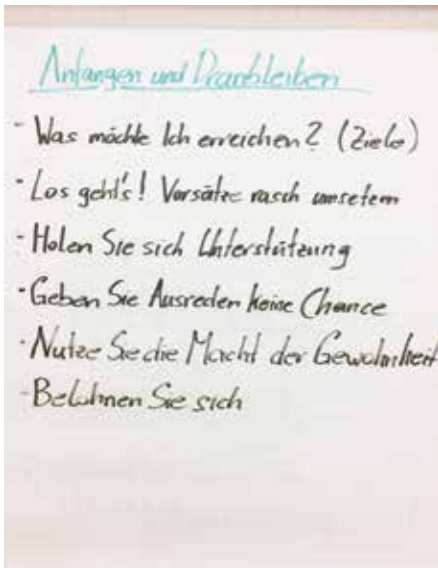 Anfangen und Dranbleiben
- Was möchte Ich erreichen? (Ziele)
- Los geht's! Vorsätze rasch umsetzen
- Holen Sie sich Unterstützung
- Geben Sie Ausreden keine Chance
- Nutze Sie die Macht der Gewohnheit
- Belohnen Sie sich